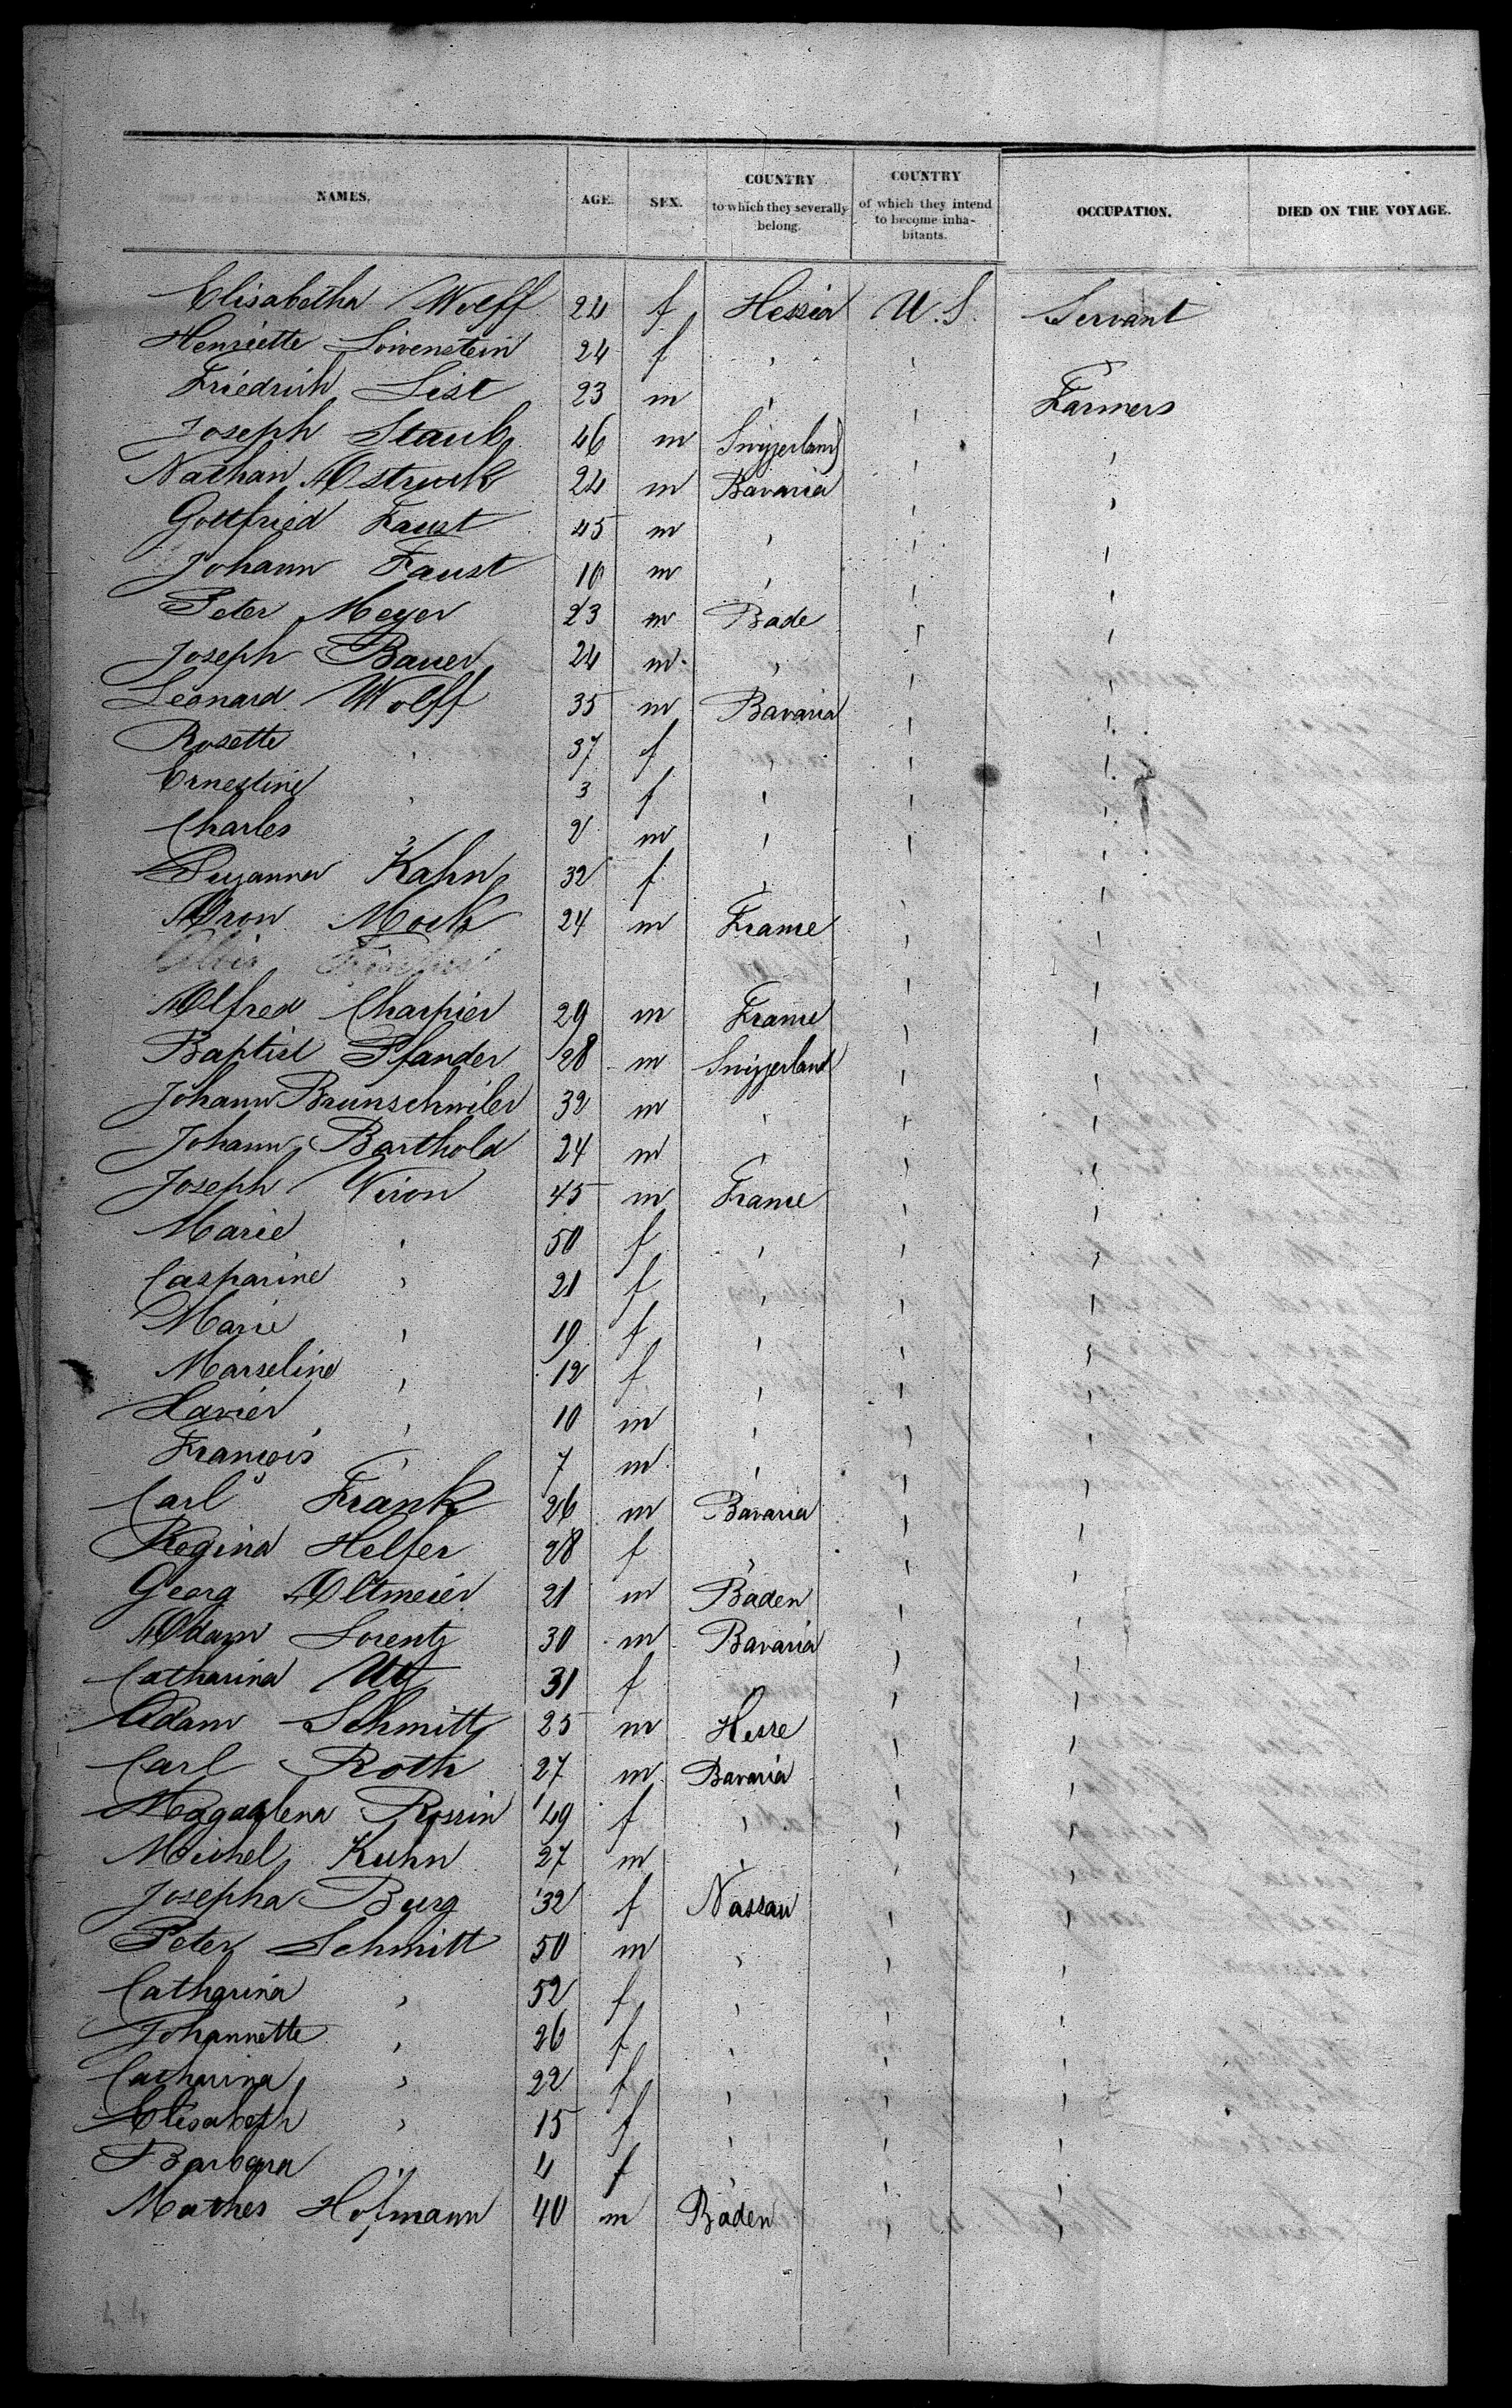 NAMES. AGE. SEX. COUNTRY to which they severally belong. COUNTRY of which they intend to become inhabitants. OCCUPATION. DIED ON THE VOYAGE.
Elisabetha Wolff 24 f Hessia U.S. Servant
Henriette Löwenstein 24 f " " "
Friedrich List 23 m " " Farmers
Joseph Staub 46 m Swizzerland " "
Nathan Astruck 24 m Bavaria " "
Gottfried Faust 45 m " " "
Johann Faust 10 m " " "
Peter Meyer 23 m Bade " "
Joseph Bauer 24 m " " "
Leonard Wolff 35 m Bavaria " "
Rosette " 37 f " " "
Ernestine " 3 f " " "
Charles " 2 m " " "
Suzanna Kahn 32 f " " "
Aron Mock 24 m France " "
Alfred Charpier 29 m France " "
Baptist Pfander 28 m Swizzerland " "
Johann Brunschwiler 32 m " " "
Johann Barthold 24 m " " "
Joseph Viron 45 m France " "
Marie " 50 f " " "
Casparine " 21 f " " "
Marie " 19 f " " "
Marseline " 12 f " " "
Xavier " 10 m " " "
François " 7 m " " "
Carl Frank 26 m Bavaria " "
Regina Helfer 28 f " " "
Georg Altmeier 21 m Baden " "
Adam Lorentz 30 m Bavaria " "
Catharina 31 f " "
Adam Schmitt 25 m Hesse " "
Carl Roth 27 m Bavaria " "
Magdalena Rossin 49 f " " "
Michel Kuhn 27 m " " "
Josepha Burg 32 f Nassau " "
Peter Schmitt 50 m " " "
Catharina " 52 f " " "
Johannette " 26 f " " "
Catharina " 22 f " " "
Elisabeth " 15 f " " "
Barbara " 4 f " " "
Mathes Hofmann 40 m Baden " "